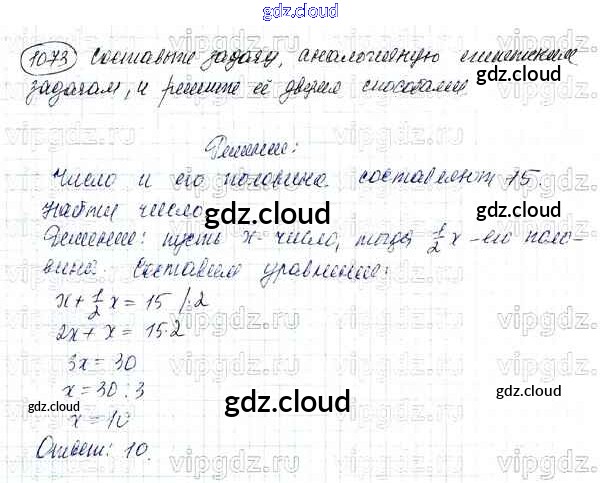 gdz.cloud
1073 Составьте задачу, аналогичную египетским
задачам, и решите её двумя способами
Решение:
Число и его половина составляют 15.
Найти число.
gdz.cloud
Решение: пусть x - число, тогда 1/2 x - его поло-
вина. Составим уравнение:
x + 1/2 x = 15 /·2
2x + x = 15·2
3x = 30
x = 30 : 3
gdz.cloud gdz.cloud gdz.cloud
x = 10
Ответ: 10.
vipgdz.cloud